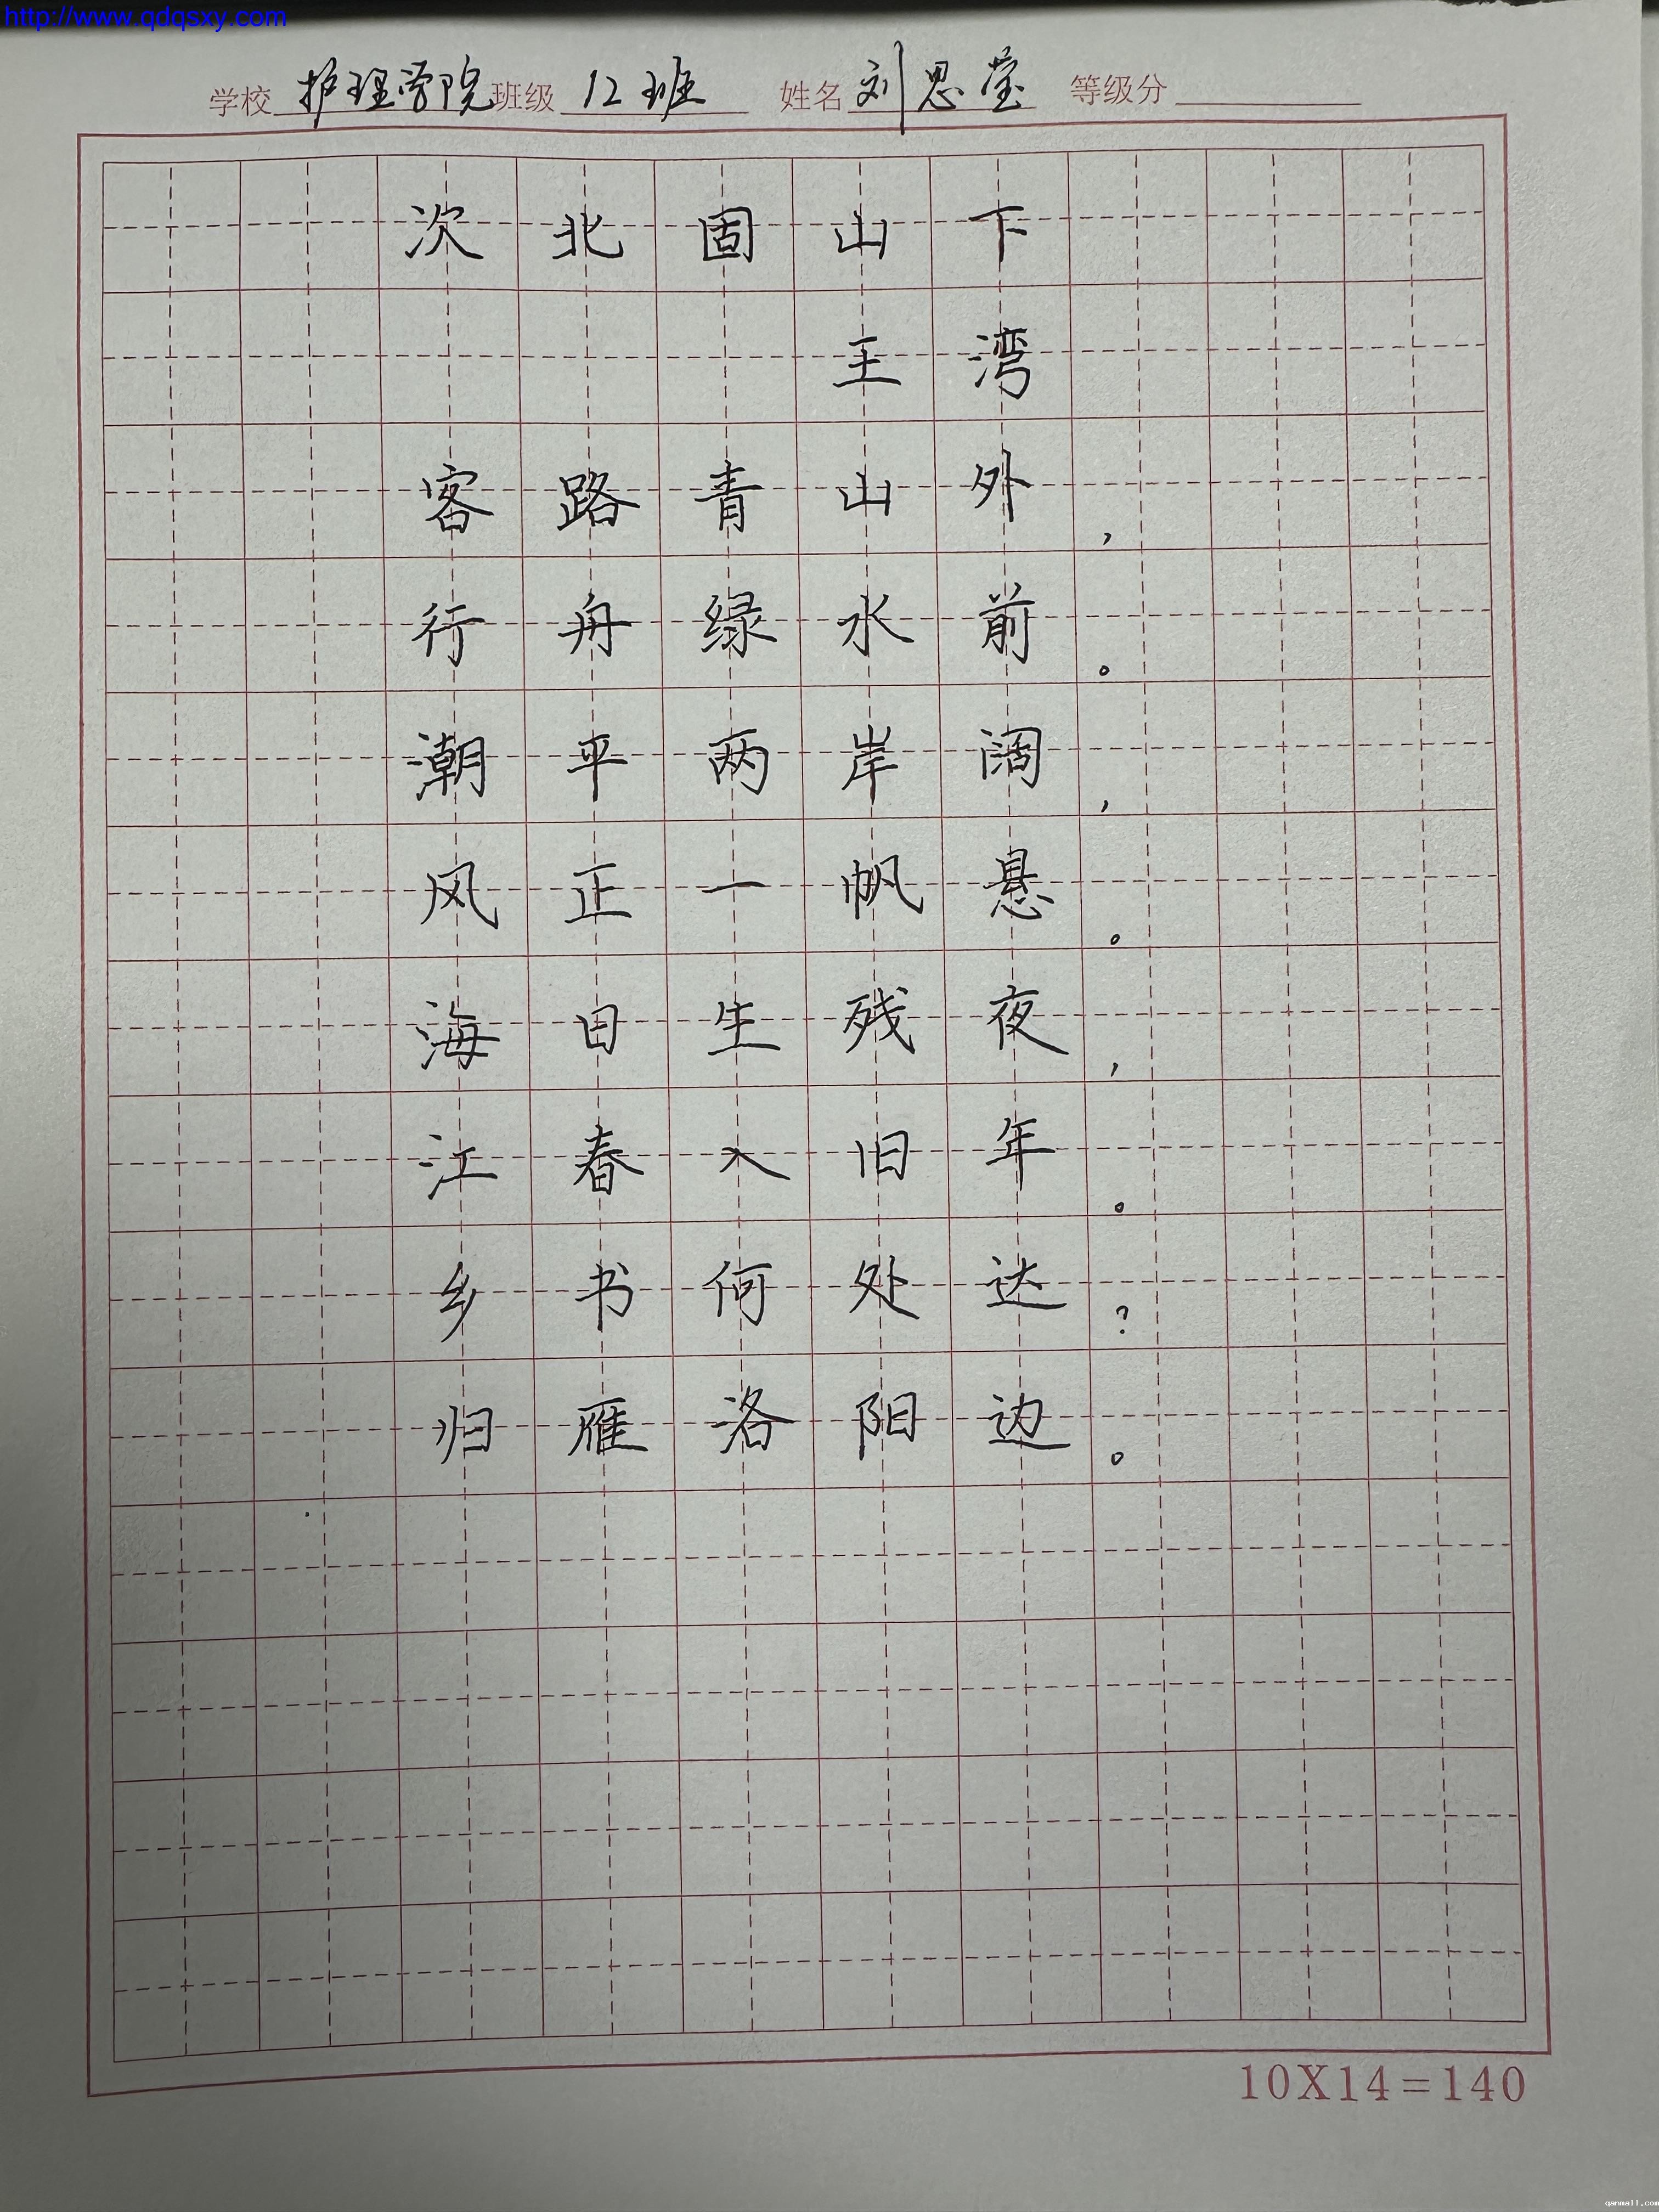 http://www.qdqsxy.com
学校 护理学院 班级 12班 姓名 刘思莹 等级分
次北固山下
王湾
客路青山外，
行舟绿水前。
潮平两岸阔，
风正一帆悬。
海日生残夜，
江春入旧年。
乡书何处达？
归雁洛阳边。
10X14=140
qanmall.com